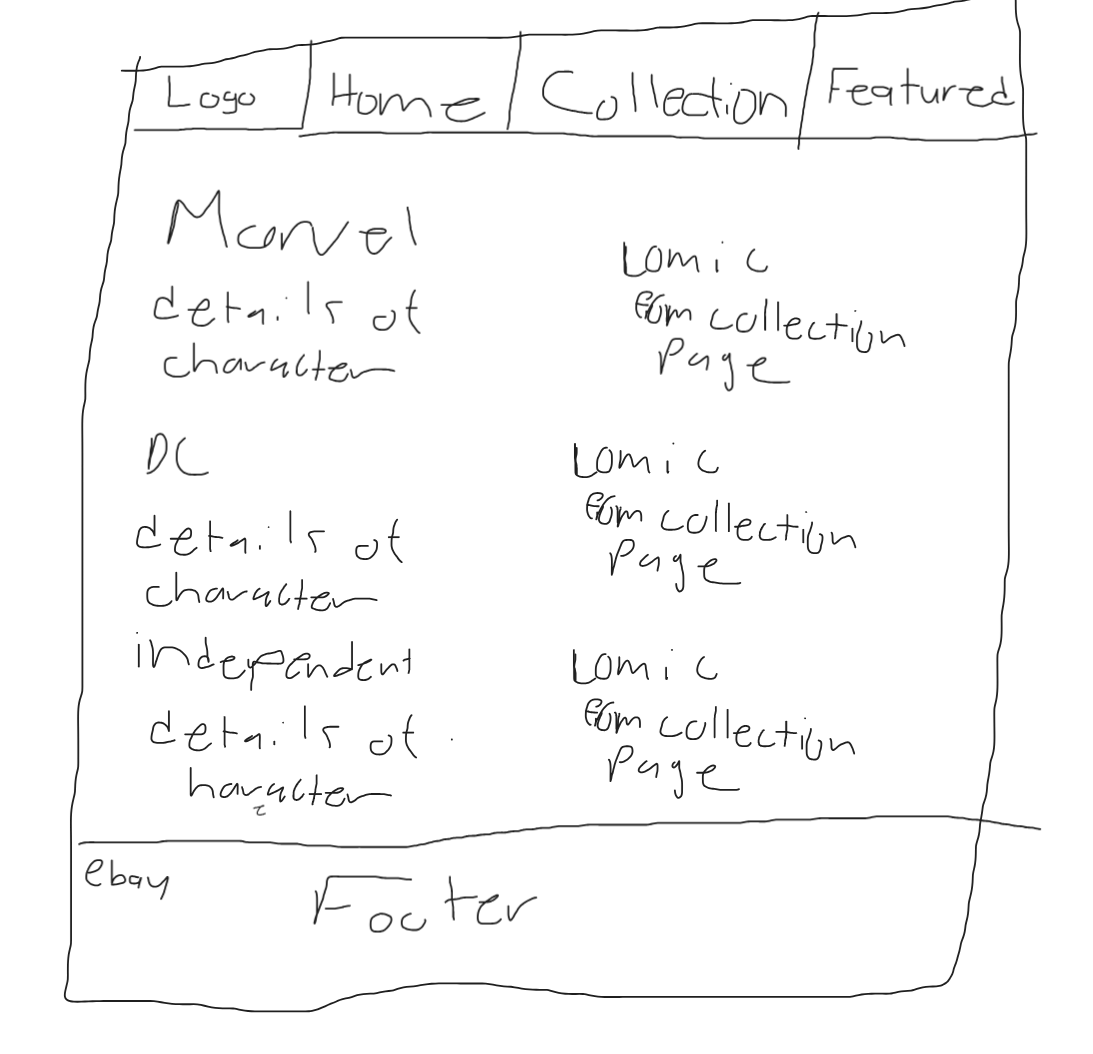 Logo Home Collection Featured
Marvel
details of
character
Comic
from collection
Page
DC
details of
character
Comic
from collection
Page
independent
details of
haracter
Comic
from collection
Page
ebay
Footer